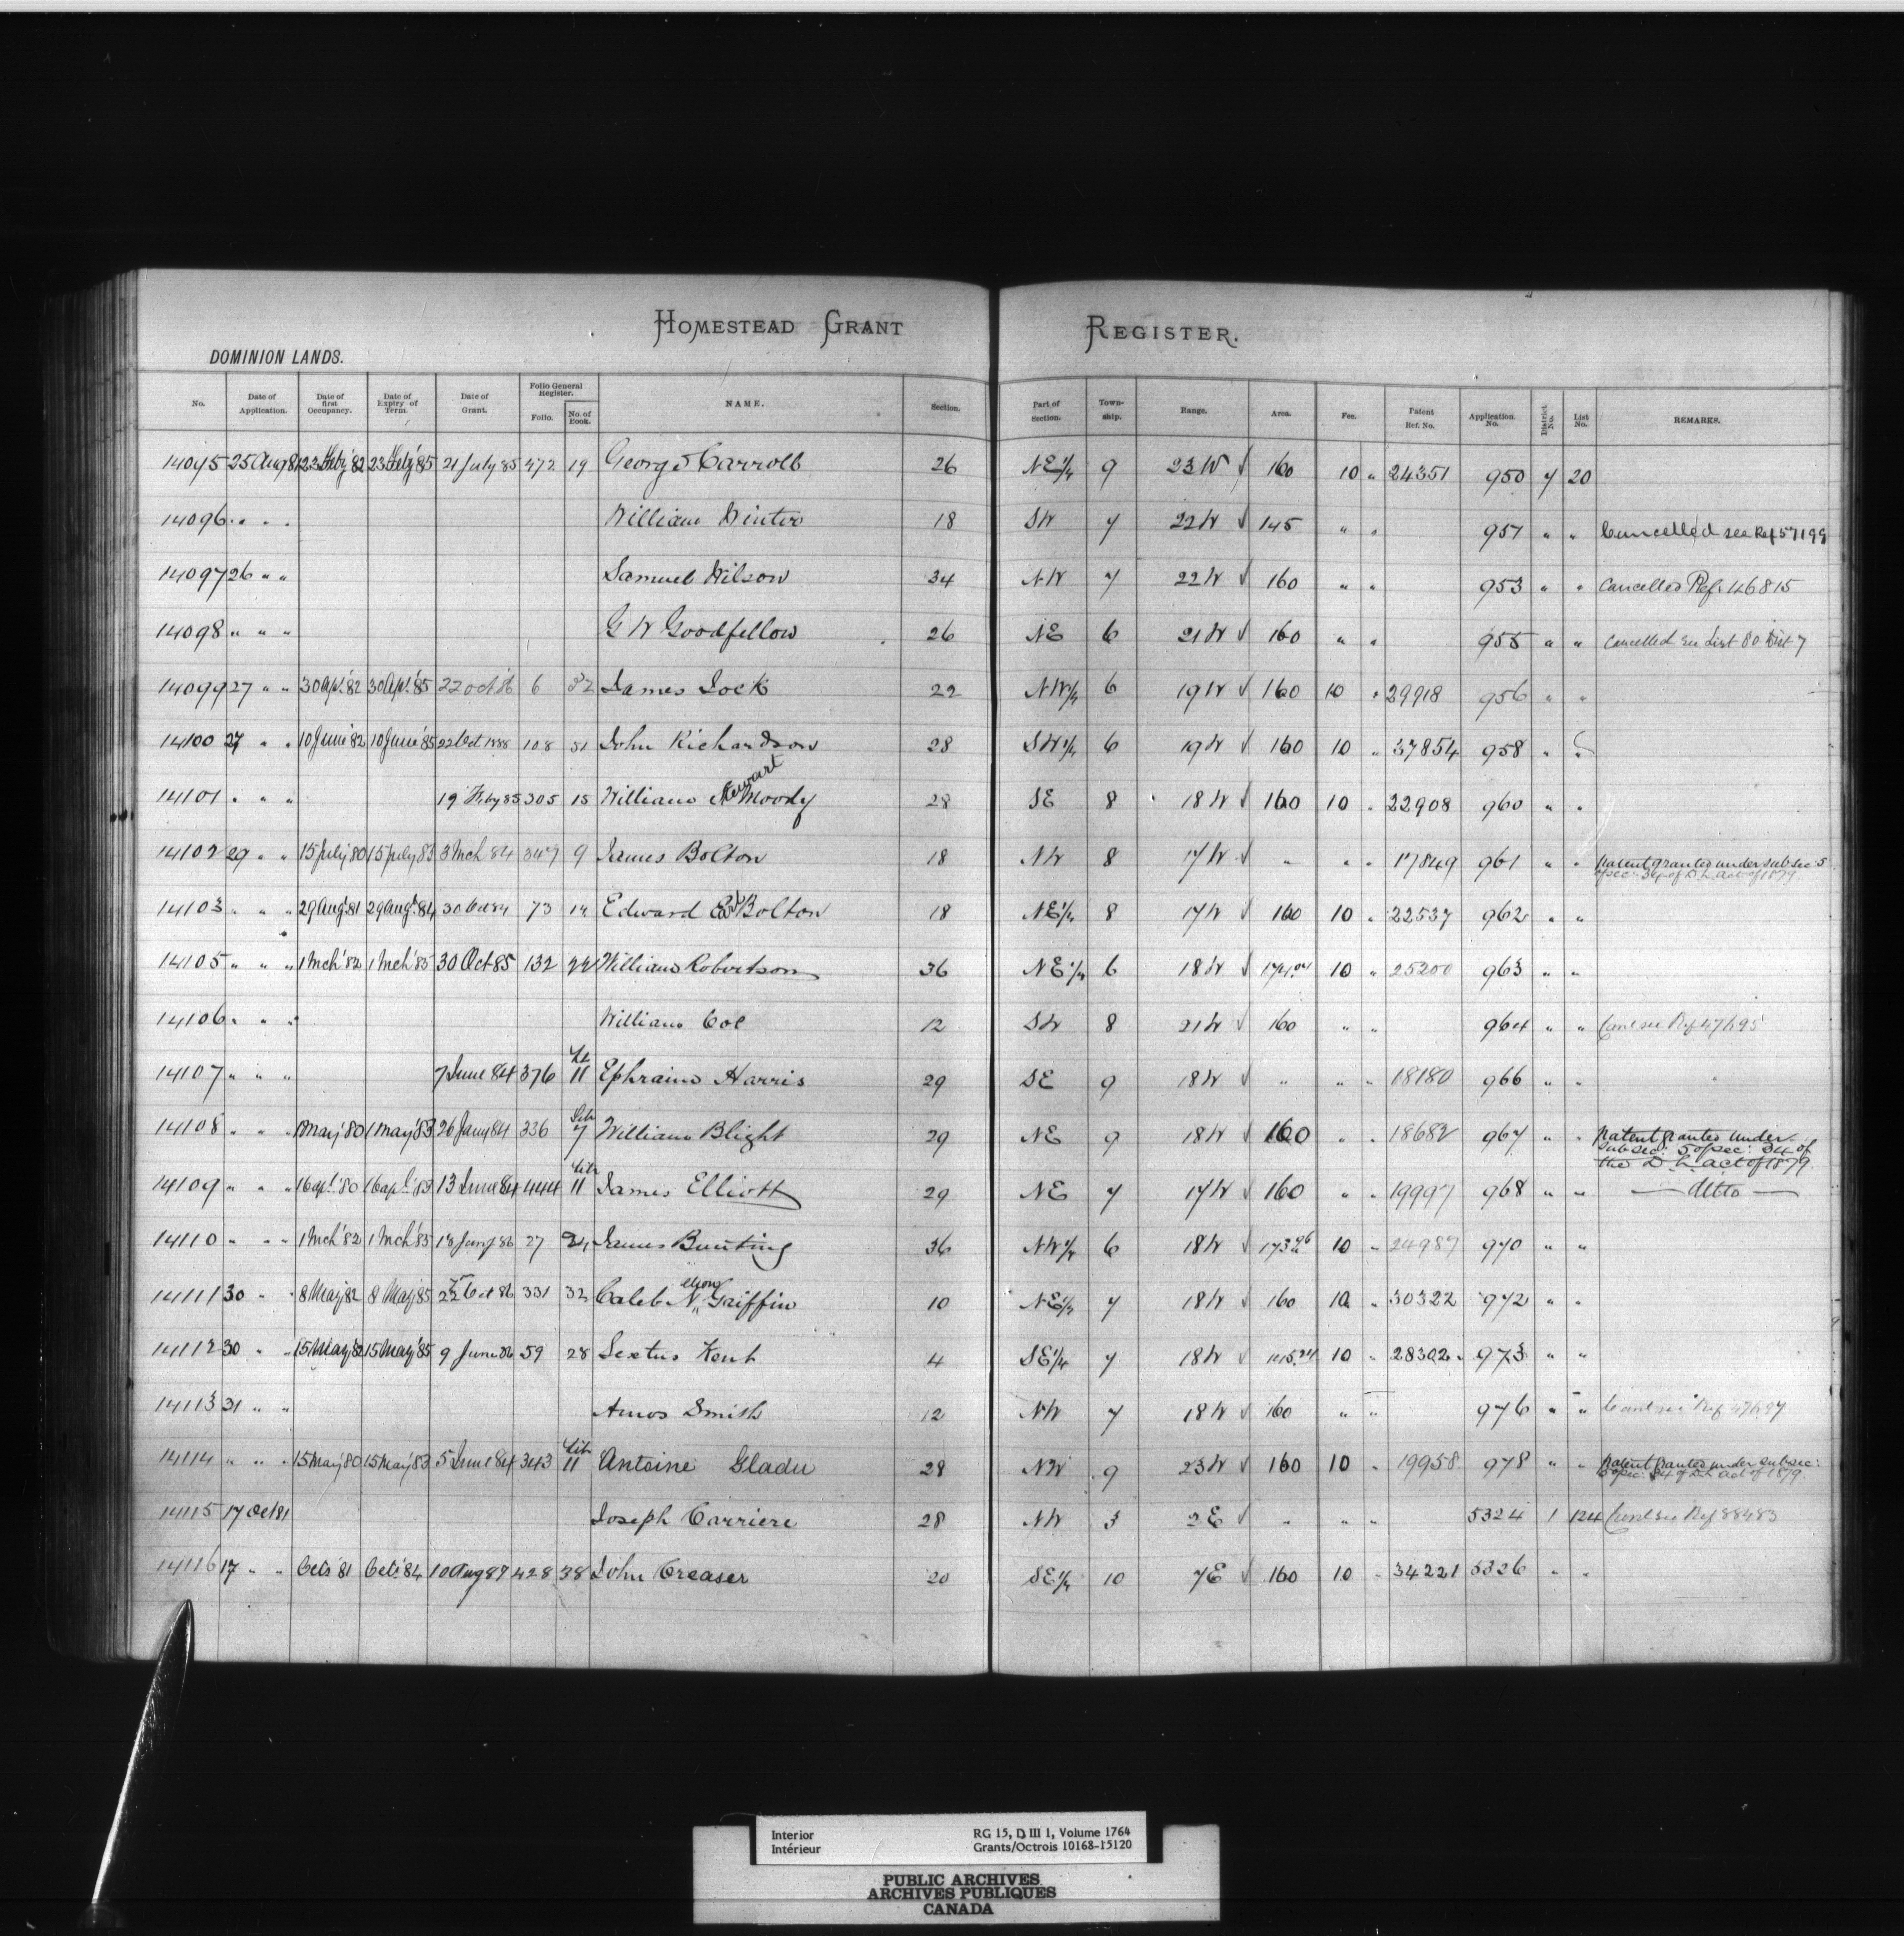 HOMESTEAD GRANT REGISTER.
DOMINION LANDS.
No. Date of Application. Date of first Occupancy. Date of Expiry of Term. Date of Grant. Folio General Register. Folio. No. of Book. NAME. Section. Part of Section. Town-ship. Range. Area. Fee. Patent Ref. No. Application No. District No. List No. REMARKS.
14095 25 Aug 81 23 Feby '82 23 Feby '85 21 July 85 472 19 George Carroll 26 NE 1/4 9 23 W √ 160 10 " 24351 950 7 20
14096 " " " William Winter 18 SW 7 22 W √ 145 " " 951 " " Cancelled see Ref 57199
14097 26 " " Samuel Wilson 34 NW 7 22 W √ 160 " " 953 " " Cancelled Ref. 46815
14098 " " " G W Goodfellow 26 NE 6 21 W √ 160 " " 955 " " Cancelled see List 80 Dist 7
14099 27 " " 30 Apl. '82 30 Apl. '85 22 Oct 86 6 32 James Lock 22 NW 1/4 6 19 W √ 160 10 " 29918 956 " "
14100 27 " " 10 June '82 10 June '85 22 Oct 1888 108 51 John Richardson 28 SW 1/4 6 19 W √ 160 10 " 37854 958 " "
14101 " " " 19 Feby 85 305 15 William Stewart Moody 28 SE 8 18 W √ 160 10 " 22908 960 " "
14102 29 " " 15 July '80 15 July '83 3 Mch 84 347 9 James Bolton 18 NW 8 17 W √ " " " 17849 961 " " Patent granted under subsec: 5
of sec: 34 of D L Act of 1879
14103 " " " 29 Aug. '81 29 Aug. '84 30 Oct 84 73 14 Edward Bolton 18 NE 1/4 8 17 W √ 160 10 " 22537 962 " "
14105 " " " 1 Mch '82 1 Mch '85 30 Oct 85 132 22 William Robertson 36 NE 1/4 6 18 W √ 10 " 25200 963 " "
14106 " " " William Coe 12 SW 8 21 W √ 160 " " 964 " " Canc see Ref 47695
14107 " " " 7 June 84 376 Lit 11 Ephraim Harris 29 SE 9 18 W √ " " " 18180 966 " "
14108 " " " 1 May '80 1 May '83 26 Jany 84 336 Lib 7 William Blight 29 NE 9 18 W √ 160 " " 18682 967 " " Patent granted under
subsec: 5 of sec: 34 of
the D. L. Act of 1879
14109 " " " 16 Apl. '80 16 Apl. '83 13 June 84 444 Lit 11 James Elliott 29 NE 7 17 W √ 160 " " 19997 968 " " — ditto —
14110 " " " 1 Mch '82 1 Mch '85 18 Jany 86 27 24 James Bunting 36 NW 1/4 6 18 W √ 173.96 10 " 24987 970 " "
14111 30 " " 8 May '82 8 May '85 22 Oct 86 331 32 Caleb N. Griffin 10 NE 1/4 7 18 W √ 160 10 " 30322 972 " "
14112 30 " " 15 May '82 15 May '85 9 June 86 59 28 Sextus Kent 4 SE 1/4 7 18 W √ 10 " 28302 973 " "
14113 31 " " Amos Smith 12 NW 7 18 W √ 160 " " 976 " " Canc see Ref
14114 " " " 15 May '80 15 May '83 5 June 84 343 Lit 11 Antoine Gladu 28 NW 9 23 W √ 160 10 " 19958 978 " " Patent granted under subsec:
5 of sec: 34 of D L Act of 1879
14115 17 Oct 81 Joseph Carriere 28 NW 3 2 E √ " " " 5324 1 124 Canc see Ref 88483
14116 17 " " Oct. '81 Oct. '84 10 Aug 87 428 38 John Creaser 20 SE 1/4 10 7 E √ 160 10 " 34221 5326 " "
Interior RG 15, D III 1, Volume 1764
Intérieur Grants/Octrois 10168-15120
PUBLIC ARCHIVES
ARCHIVES PUBLIQUES
CANADA